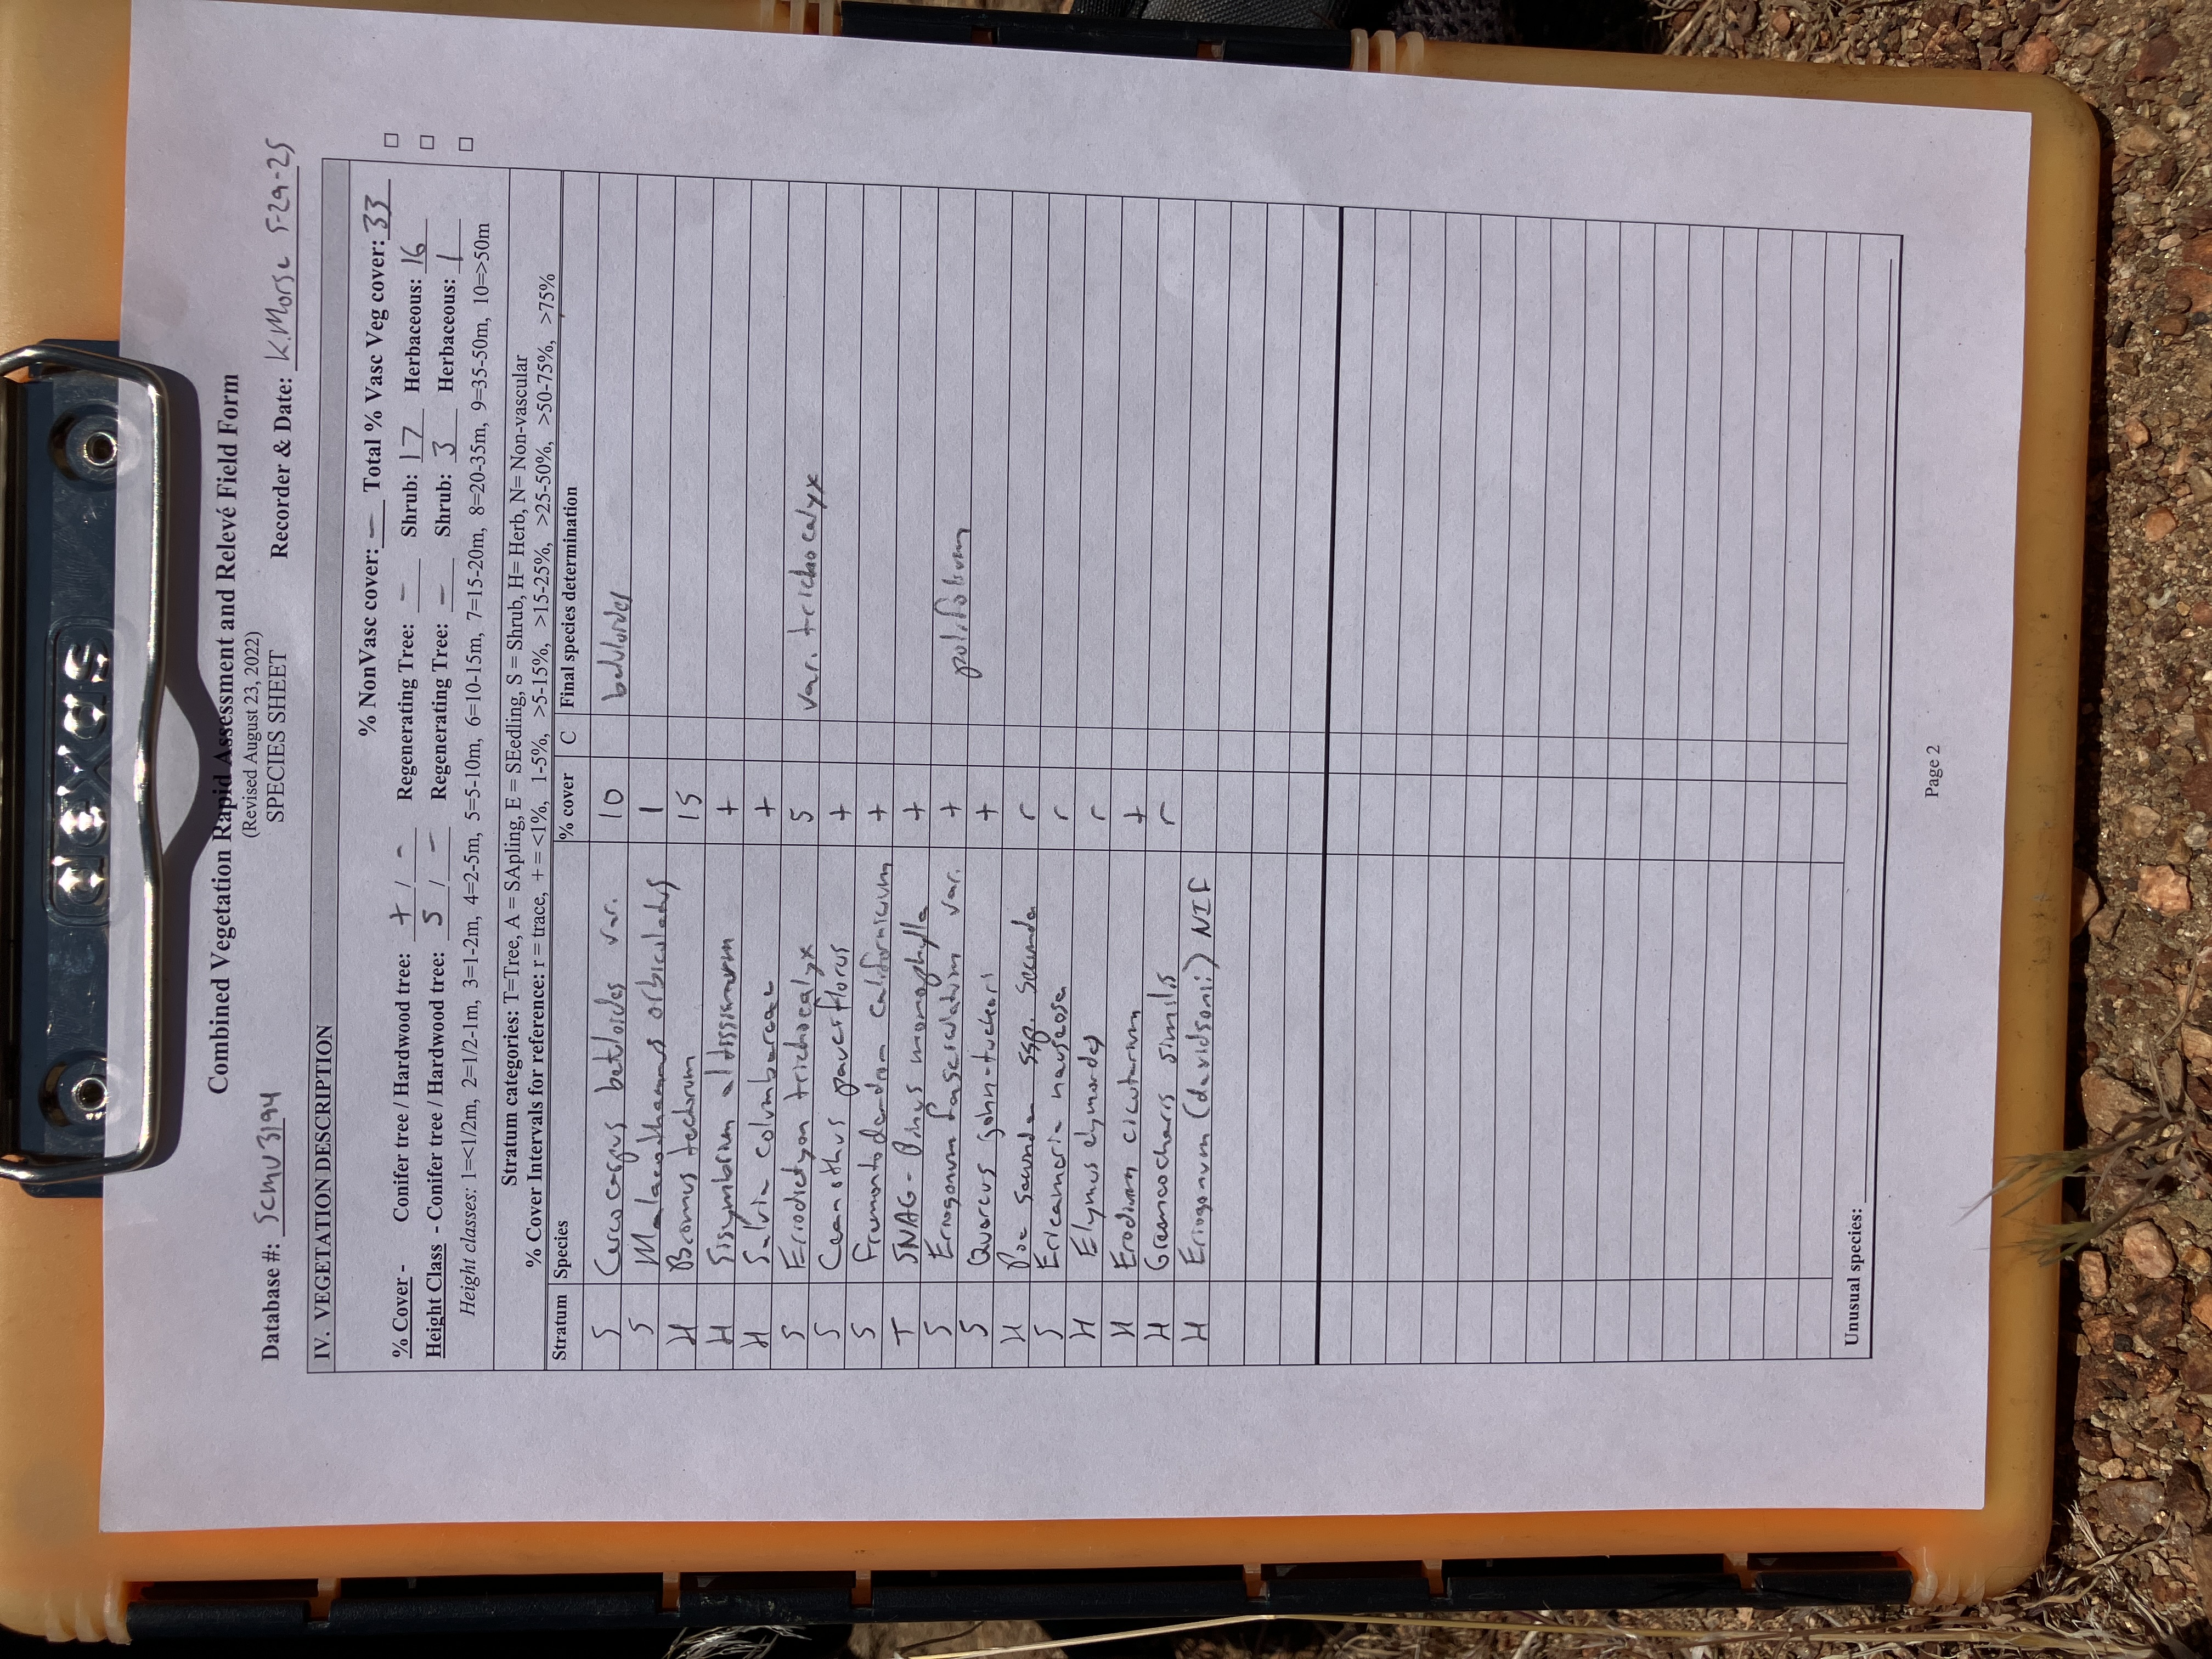 dexas
Combined Vegetation Rapid Assessment and Relevé Field Form
(Revised August 23, 2022)
SPECIES SHEET
Database #: SCMU3194 Recorder & Date: K.Morse 5-29-25
IV. VEGETATION DESCRIPTION
% NonVasc cover: – Total % Vasc Veg cover: 33 □
% Cover - Conifer tree / Hardwood tree: + / – Regenerating Tree: – Shrub: 17 Herbaceous: 16 □
Height Class - Conifer tree / Hardwood tree: 5 / – Regenerating Tree: – Shrub: 3 Herbaceous: 1 □
Height classes: 1=<1/2m, 2=1/2-1m, 3=1-2m, 4=2-5m, 5=5-10m, 6=10-15m, 7=15-20m, 8=20-35m, 9=35-50m, 10=>50m
Stratum categories: T=Tree, A = SApling, E = SEedling, S = Shrub, H= Herb, N= Non-vascular
% Cover Intervals for reference: r = trace, + = <1%, 1-5%, >5-15%, >15-25%, >25-50%, >50-75%, >75%
Stratum Species % cover C Final species determination
S Cercocarpus betuloides var. 10 betuloides
S Malacothamnus orbiculatus 1
H Bromus tectorum 15
H Sisymbrium altissimum +
H Salvia columbariae +
S Eriodictyon trichocalyx 5 var. trichocalyx
S Ceanothus pauciflorus +
S Fremontodendron californicum +
T SNAG - Pinus monophylla +
S Eriogonum fasciculatum var. + polifolium
S Quercus john-tuckeri +
H Poa secunda ssp. secunda r
S Ericameria nauseosa r
H Elymus elymoides r
H Erodium cicutarium +
H Greeneocharis similis r
H Eriogonum (davidsonii) NIF
Unusual species:
Page 2